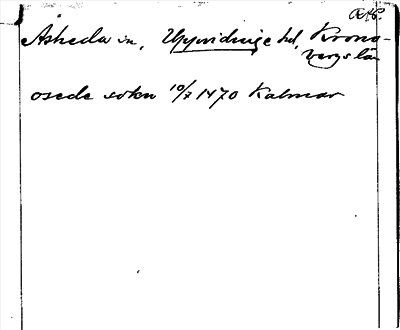 RAP.
Åsheda sn, Uppvidinge hd, Krono-
bergs län
osede sokn 10/7 1470 Kalmar